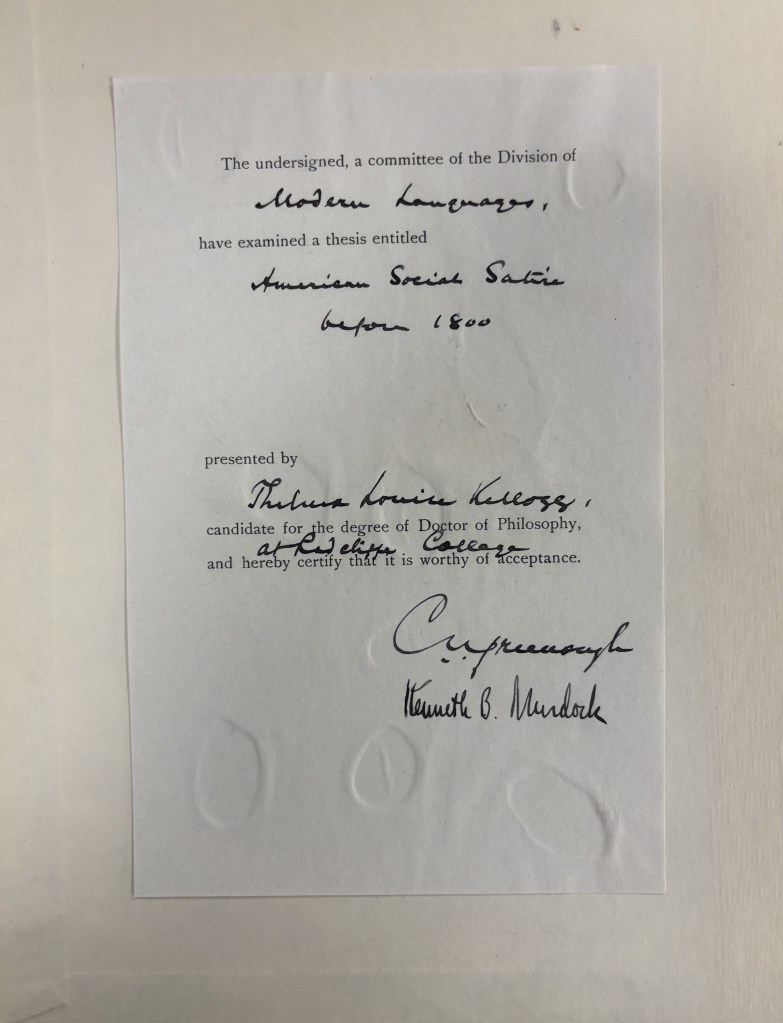 The undersigned, a committee of the Division of
Modern Languages,
have examined a thesis entitled
American Social Satire
before 1800
presented by
Thelma Louise Kellogg,
candidate for the degree of Doctor of Philosophy,
at Radcliffe College
and hereby certify that it is worthy of acceptance.
C. N. Greenough
Kenneth B. Murdock